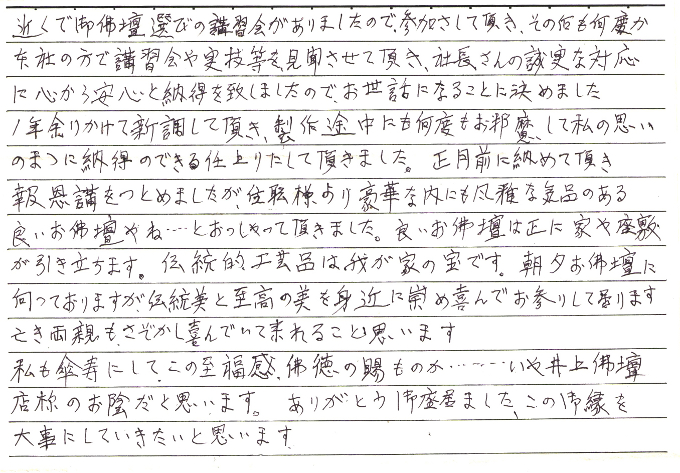 近くで御佛壇選びの講習会がありましたので、参加さして頂き、その后も何度か
本社の方で講習会や実技等を見聞させて頂き、社長さんの誠実な対応
に心から安心と納得を致しましたので、お世話になることに決めました
1年余りかけて新調して頂き、製作途中にも何度もお邪魔して私の思い
のまゝに納得のできる仕上りにして頂きました。正月前に納めて頂き
報恩講をつとめましたが住職様より豪華な内にも風雅な気品のある
良いお佛壇やね…とおっしゃって頂きました。良いお佛壇は正に家や座敷
が引き立ちます。伝統的工芸品は我が家の宝です。朝夕お佛壇に
向っておりますが、伝統美と至高の美を身近に崇め喜んでお参りして居ります
亡き両親も、さぞかし喜んでいて来れること思います
私も傘寿にして、この至福感、佛徳の賜ものか………いや井上佛壇
店様のお陰だと思います。ありがとう御座居ました、この御縁を
大事にしていきたいと思います